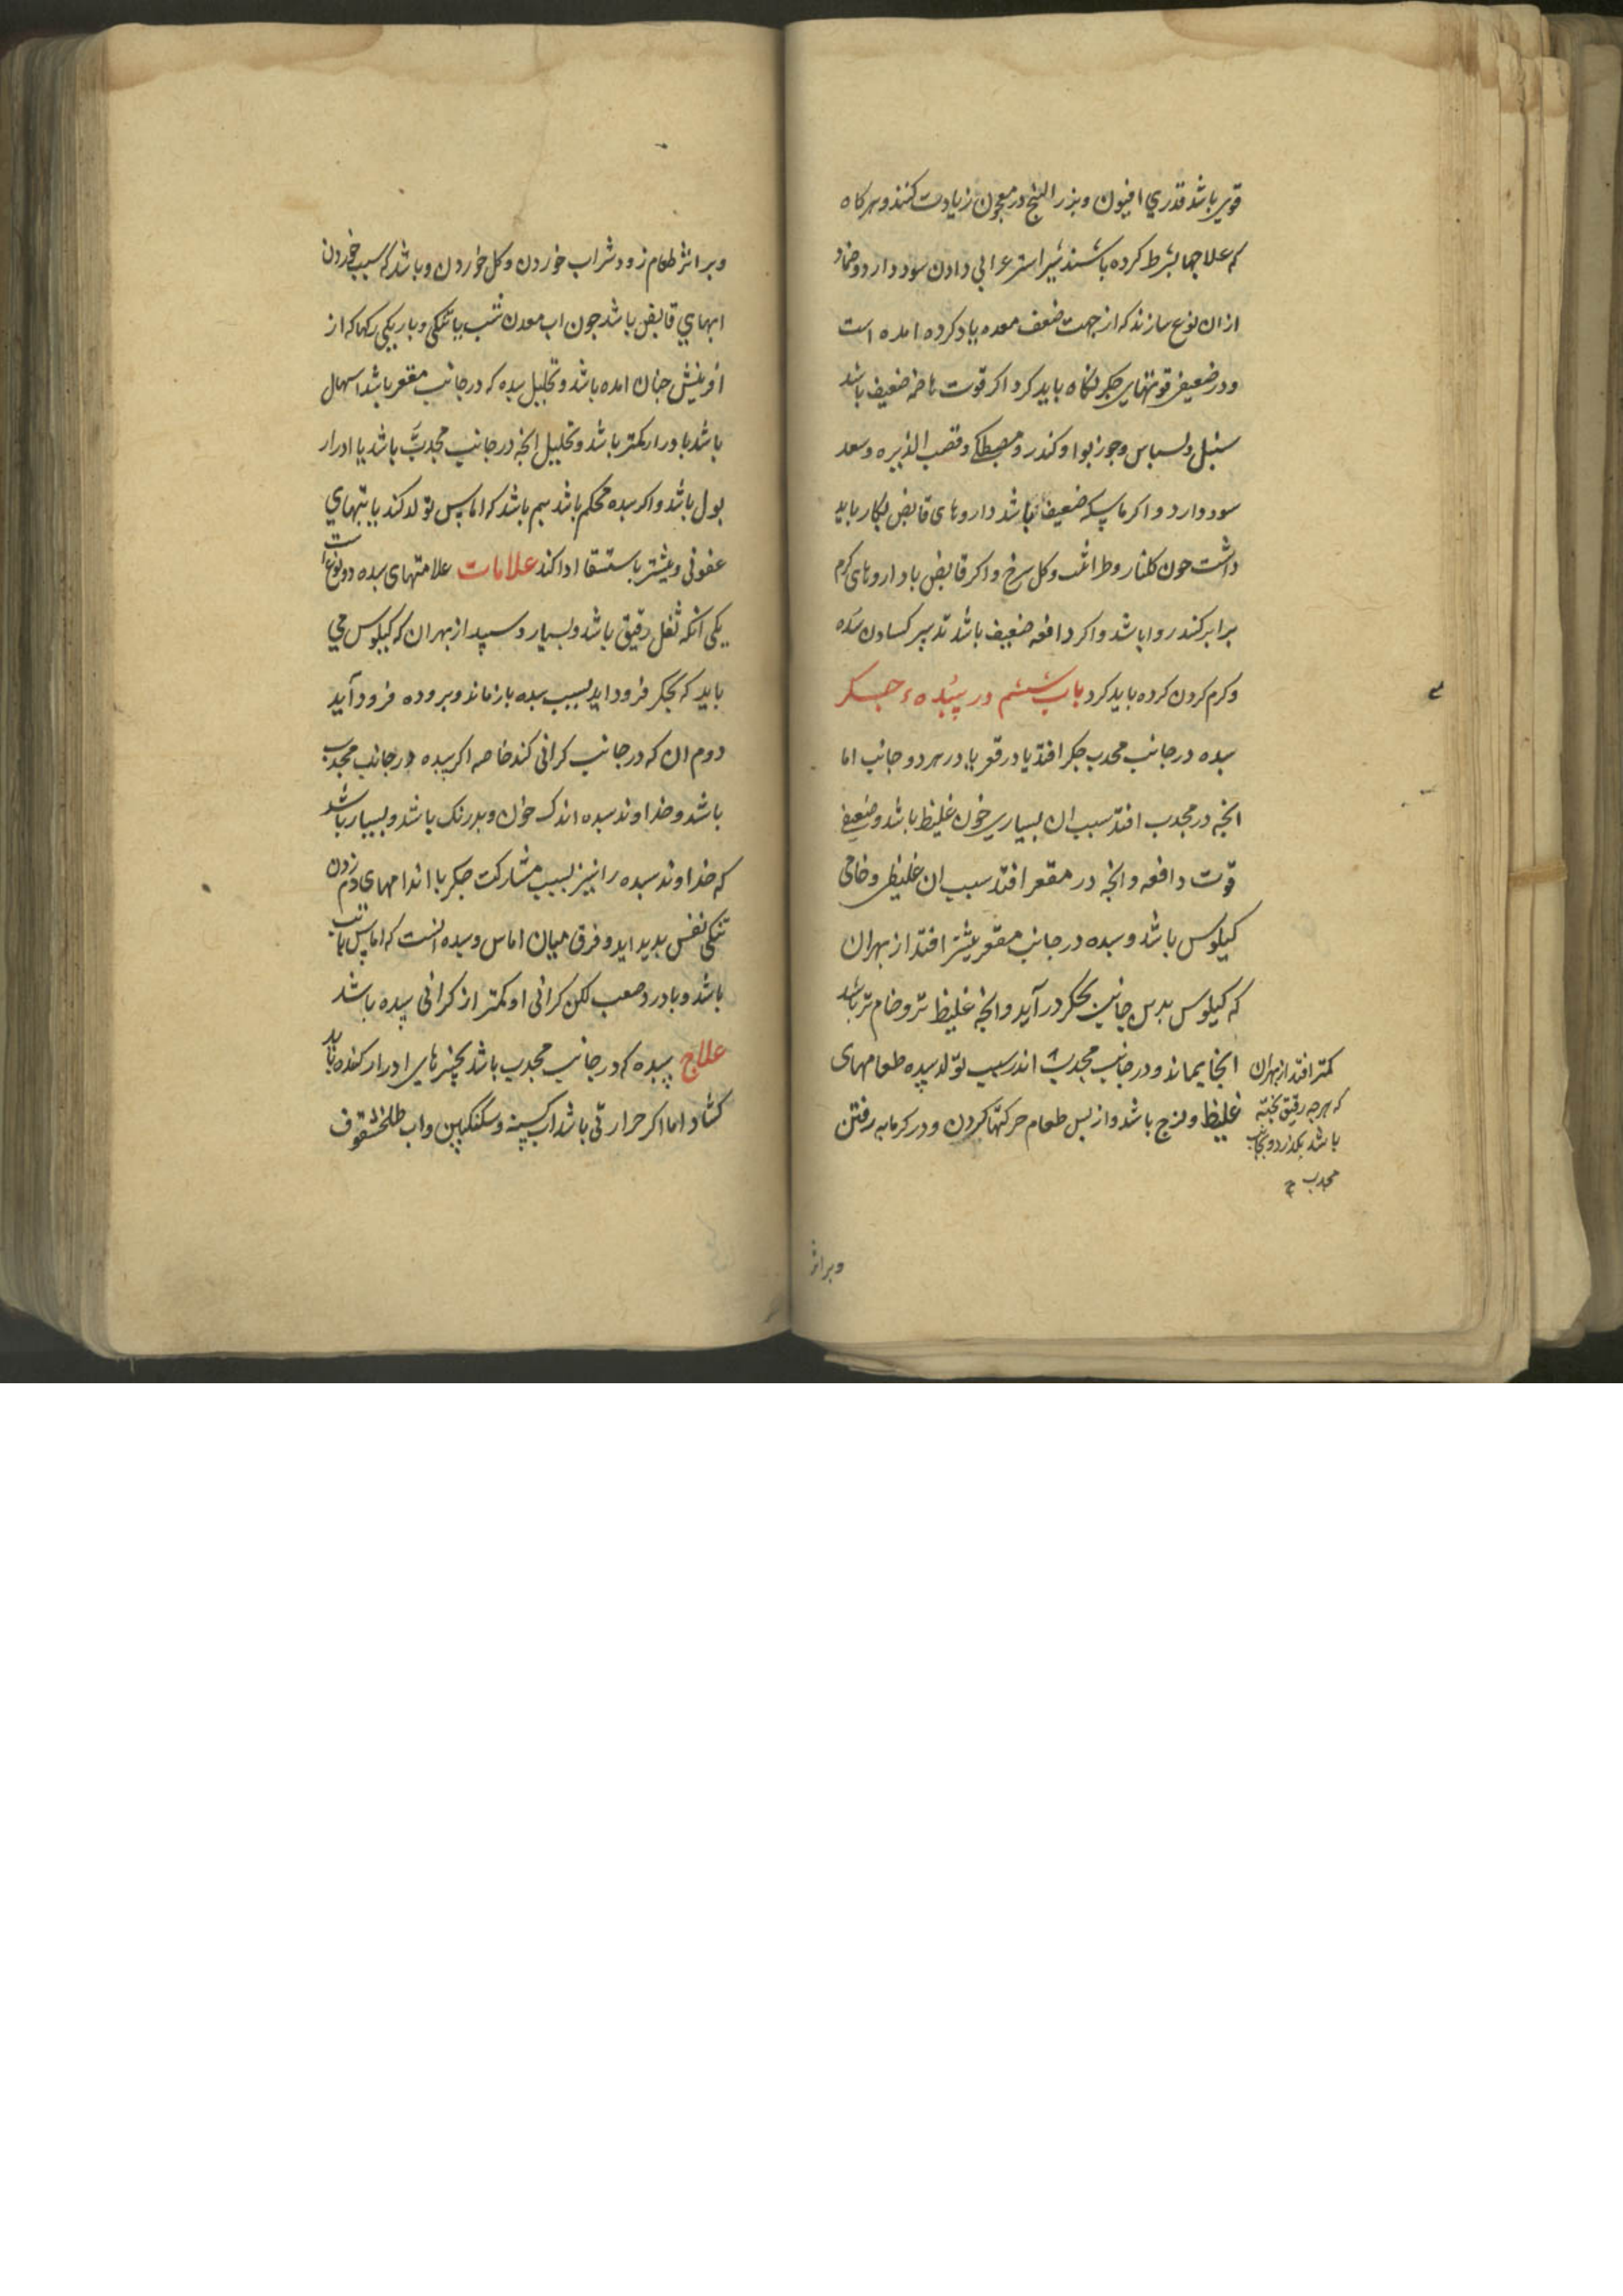 قوی باشد قدری افیون و بزر البنج در معجون زیادت کنند و هر کاه
که علاجها بشرط کرده باشند شیر اشتر عرابی دادن سود دارد و ضماد
ازان نوع سازند که از جهت ضعف معده یاد کرده امده است
و در ضعیفی قوتهای جکر نکاه باید کرد اکر قوت هاضمه ضعیف باشد
سنبل و بسباس و جوز بوا و کندر و مصطکی و قصب الذریره و سعد
سود دارد و اکر ماسکه ضعیف باشد داروهای قابض بکار باید
داشت جون کلنار و طراثیث و کل سرخ و اکر قابض با داروهای کرم
برابر کنند روا باشد و اکر دافعه ضعیف باشد تدبیر کشادن سده
و کرم کردن کرده باید کرد باب ششم در سده جکر
سده در جانب محدب جکر افتد یا در قعر یا در هر دو جانب اما
انجه در محدب افتد سبب ان بسیاری خون غلیظ باشد و ضعیفی
قوت دافعه و انجه در مقعر افتد سبب ان غلیظی و خامی
کیلوس باشد و سده در جانب مقعر بیشتر افتد از بهر ان
که کیلوس بدین جانب بجکر در آید و انجه غلیظ تر و خام تر باشد
انجا بماند و در جانب محدب
کمتر افتد از بهر ان
که هرجه رقیق بخته
باشد بکذرد و بجانب
محدب
اندر سبب تولد سده طعامهای
غلیظ و لزج باشد و از بس طعام حرکتها کردن و در کرمابه رفتن
وبر اثر
وبر اثر طعام زود شراب خوردن و کل خوردن و باشد که سبب خوردن
ابهای قابض باشد جون اب معدن شب یا تنکی و باریکی رکها که از
افرینش جنان امده باشد و تحلیل سده که در جانب مقعر باشد اسهال
باشد یا ادرار کمتر باشد و تحلیل انجه در جانب محدب باشد با ادرار
بول باشد و اکر سده محکم باشد بیم باشد که اماس تولد کند یا تبهای
عفونی و بیشتر باستسقا ادا کند علامات علامتهای سده دو نوع است
یکی آنکه ثفل رقیق باشد و بسیار و سپید از بهر ان که کیلوس می
باید که بجکر فرود اید بسبب سده باز ماند و بروده فرود آید
دوم ان که در جانب کرانی کند خاصه اکر سده در جانب محدب
باشد و خداوند سده اندک خون و بدرنک باشد و بسیار باشد
که خداوند سده را نیز بسبب مشارکت جکر با اندامهای دم زدن
تنکی نفس بدید اید و فرق میان اماس و سده انست که اماس با تب
باشد و با درد صعب لکن کرانی او کمتر از کرانی سده باشد
علاج سده که در جانب محدب باشد بچیزهای ادرار کننده باید
کشاد اما اکر حرارتی باشد اب کسنه و سکنکبین و اب طلخشقوق